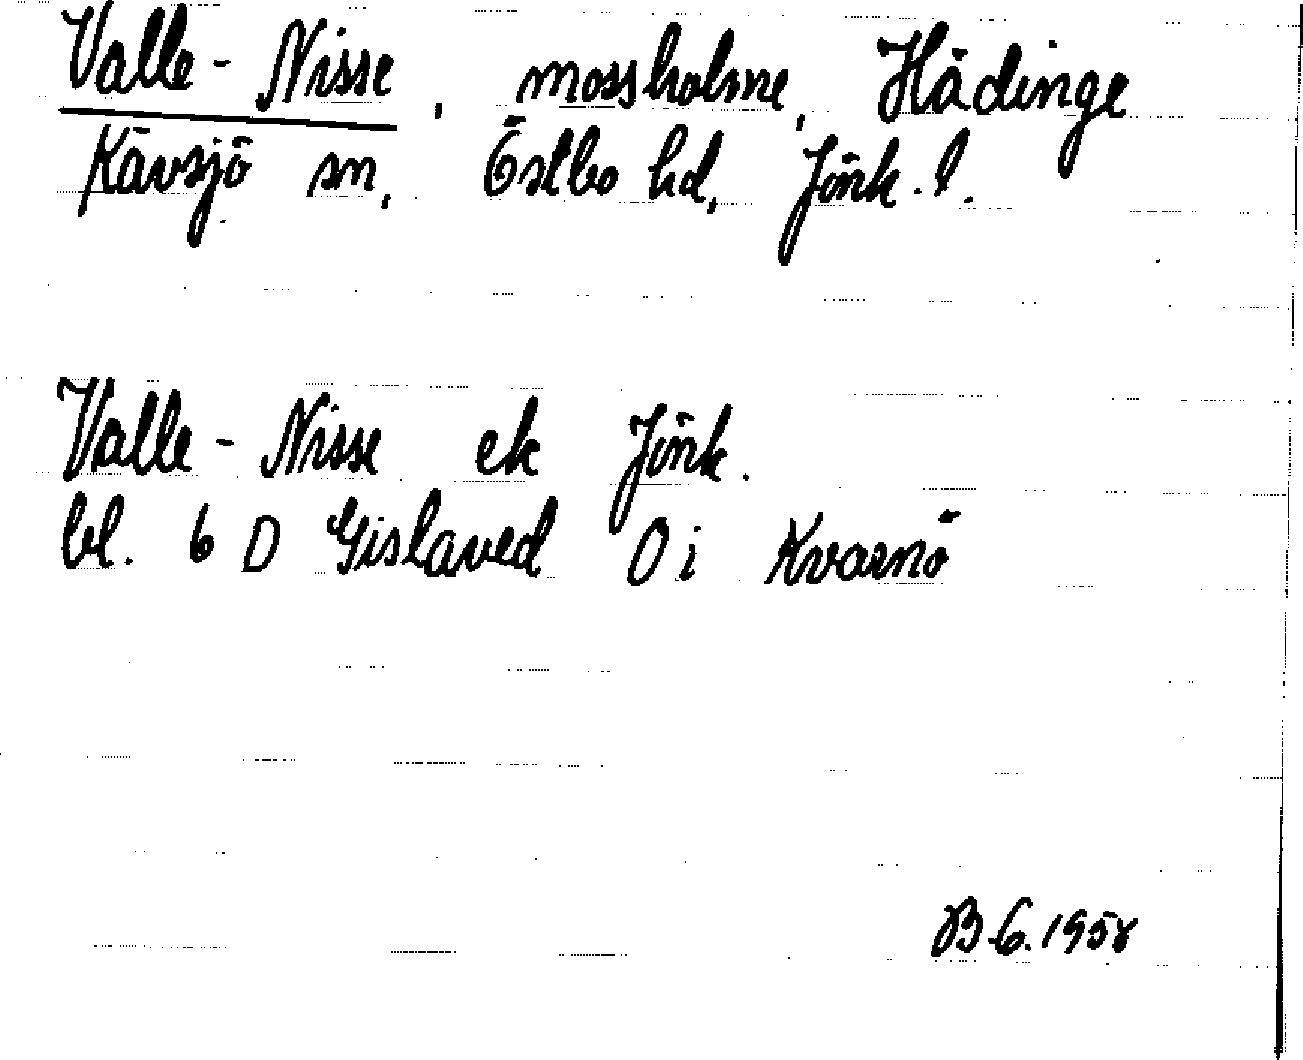 Valle-Nisse, mossholme, Hådinge
Kävsjö sn, Östbo hd, Jönk. l.
Valle-Nisse ek Jönk.
bl. 6 D Gislaved O i Kvarnö
B.G. 1958